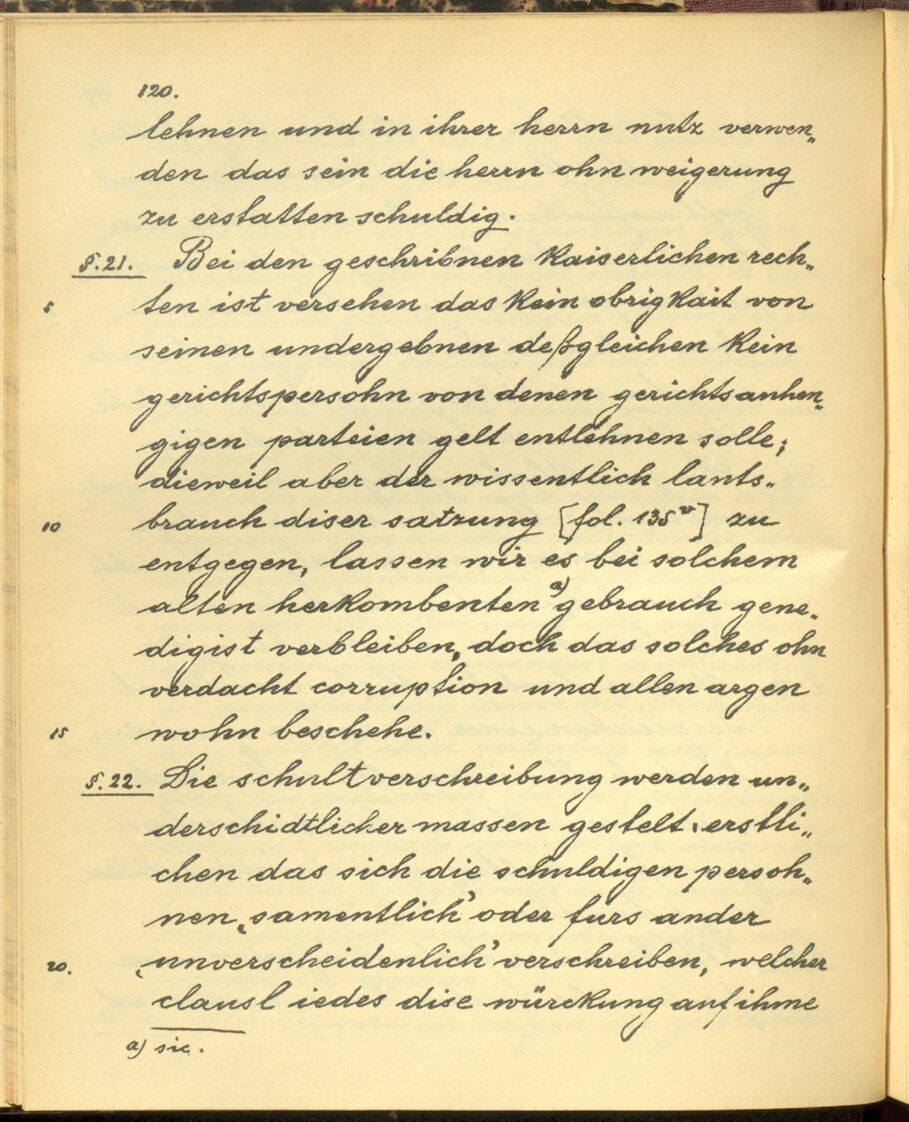 120.
lehnen und in ihrer herrn nutz verwen„
den das sein die herrn ohn weigerung
zu erstatten schuldig.
§.21. Bei den geschribnen Kaiserlichen rech„
5 ten ist versehen das Kein obrigKait von
seinen undergebnen deßgleichen Kein
gerichtspersohn von denen gerichtsanhen„
gigen parteien gelt entlehnen solle;
dieweil aber der wissentlich lants„
10 brauch diser satzung [fol. 135ᵛ] zu
entgegen, lassen wir es bei solchem
alten herKombenten a) gebrauch gene„
digist verbleiben, doch das solches ohn
verdacht corruption und allen argen
15 wohn beschehe.
§.22. Die schultverschreibung werden un„
derschidtlicher massen gestelt, erstli„
chen das sich die schuldigen persoh„
nen ‚samentlich’ oder fürs ander
20. ‚unverscheidenlich’ verschreiben, welcher
clausl iedes dise würcKung auf ihme
a) sic.